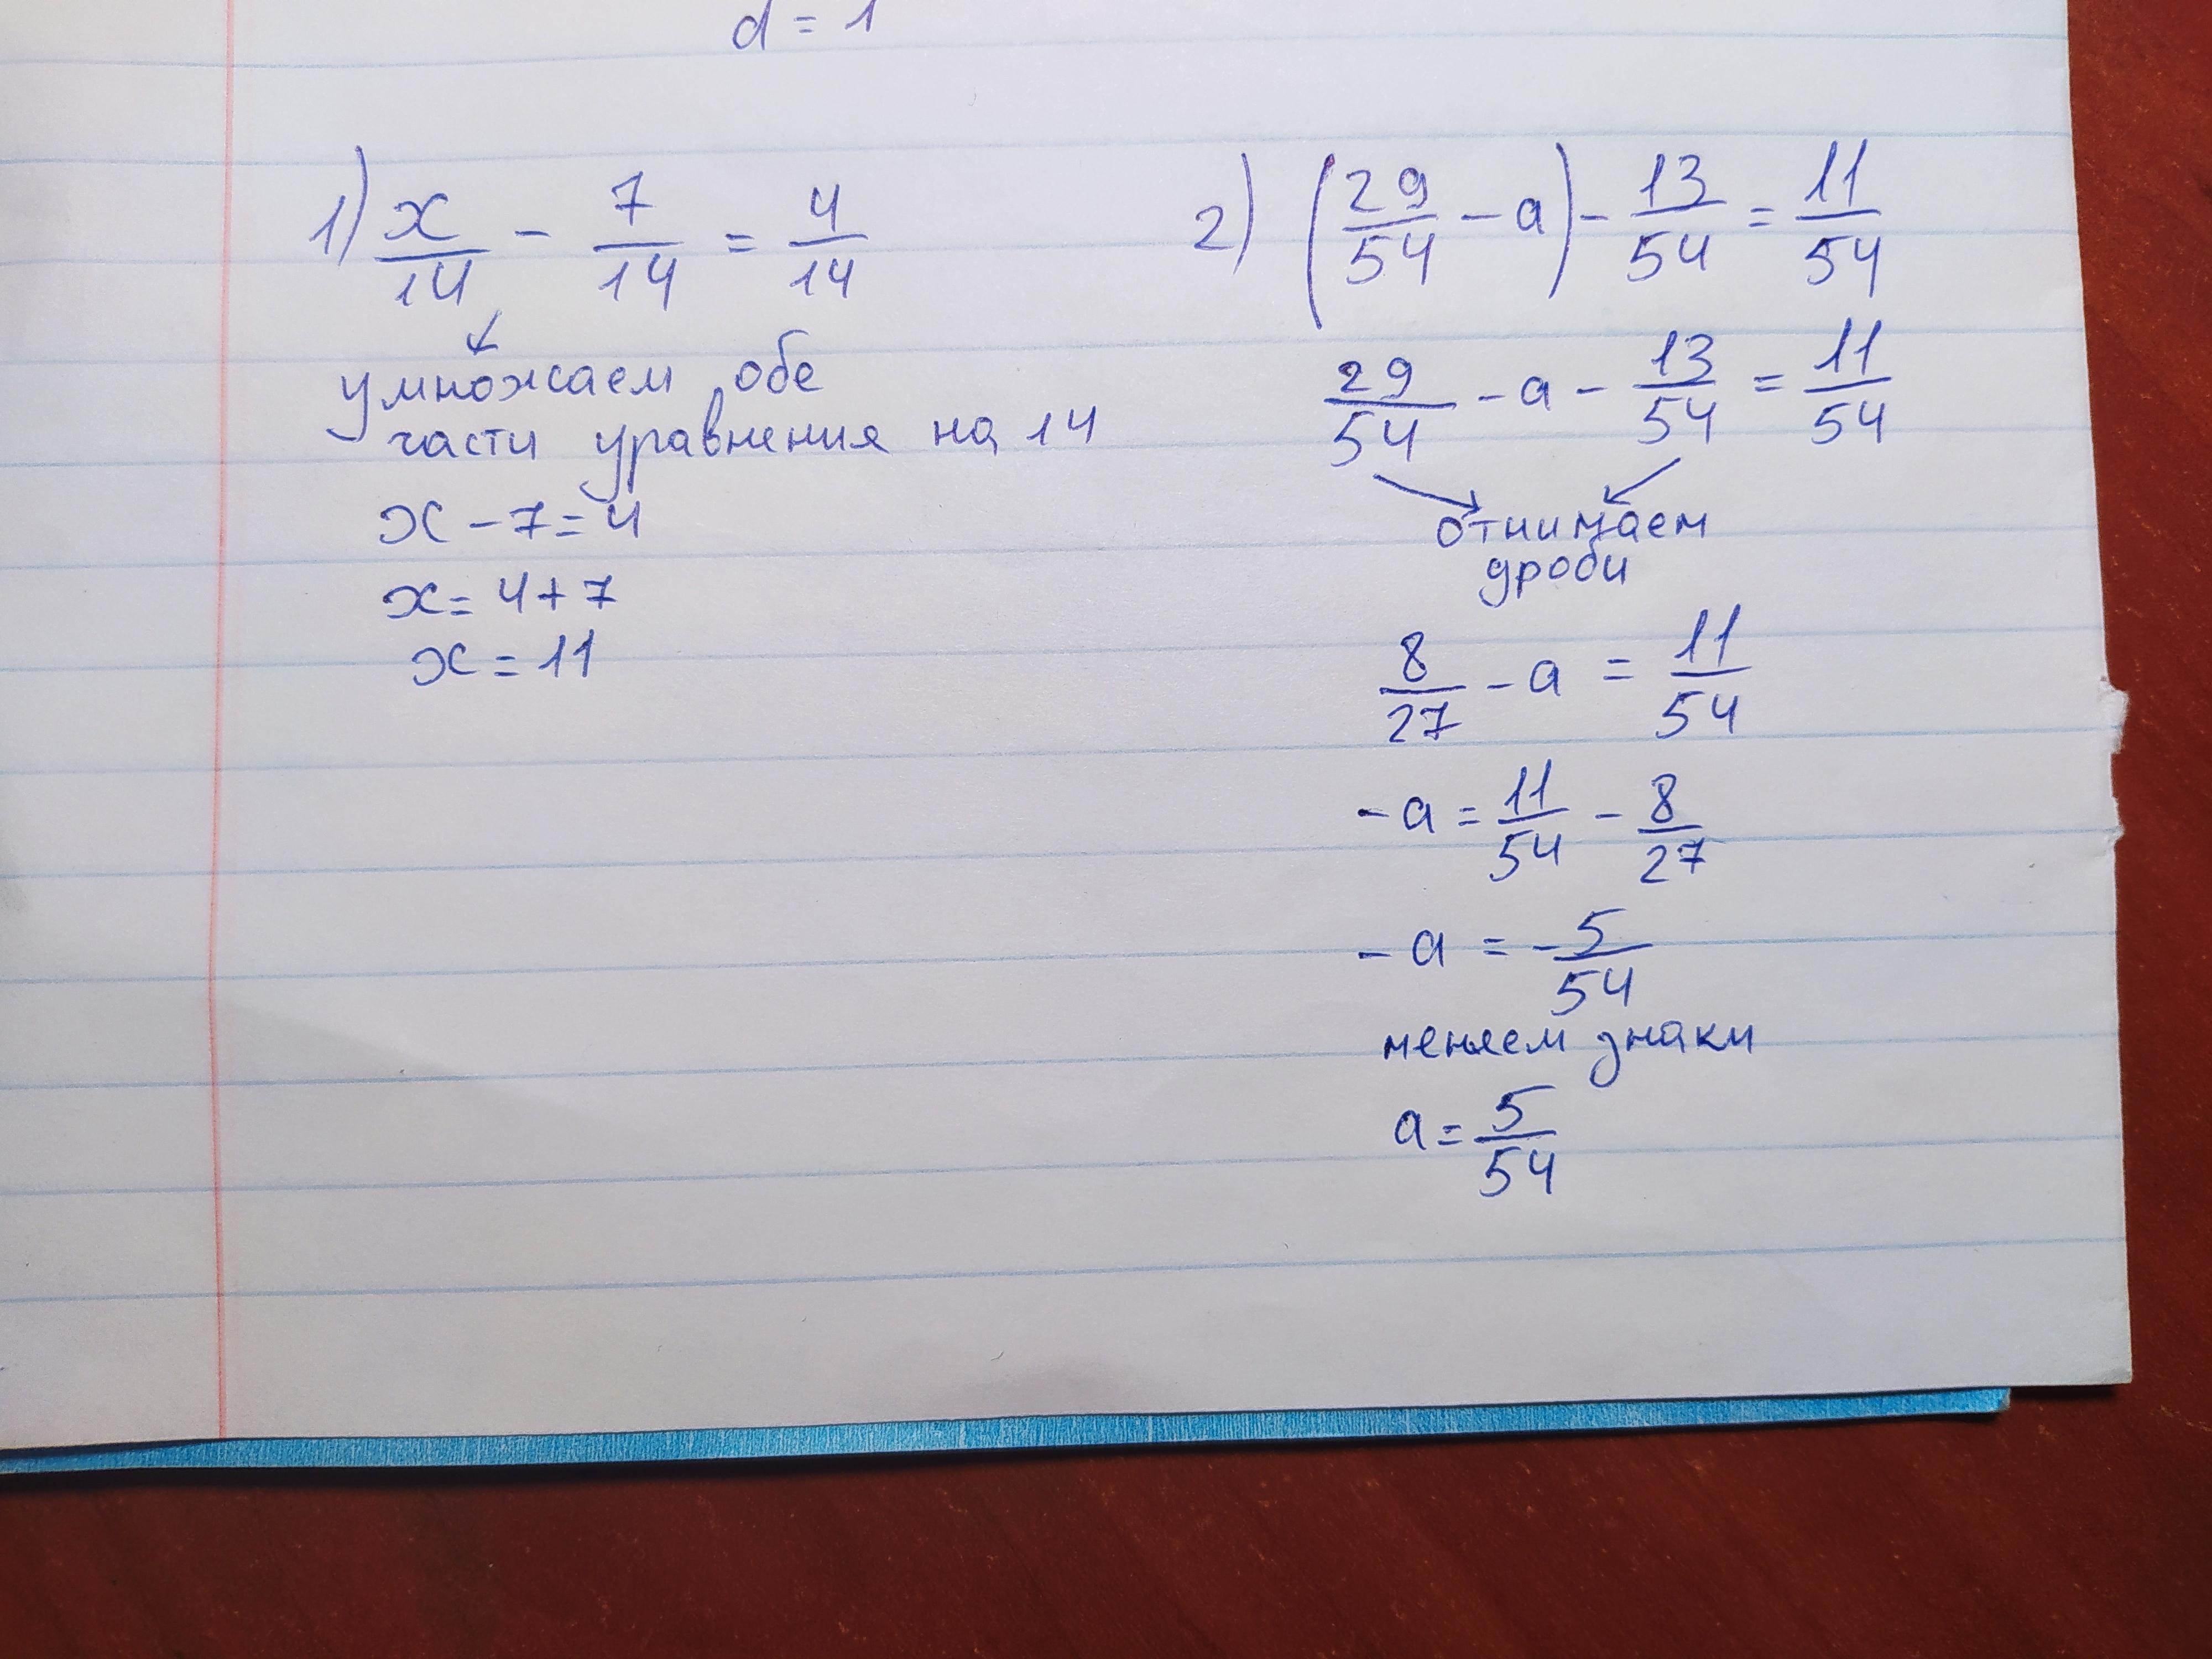 d = 1
1) x/14 - 7/14 = 4/14
умножаем обе
части уравнения на 14
x - 7 = 4
x = 4 + 7
x = 11
2) (29/54 - a) - 13/54 = 11/54
29/54 - a - 13/54 = 11/54
отнимаем
дроби
8/27 - a = 11/54
-a = 11/54 - 8/27
-a = -5/54
меняем знаки
a = 5/54